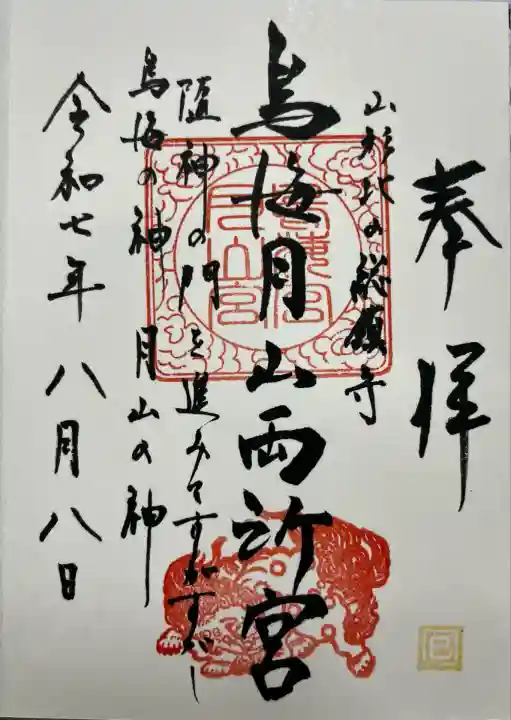 奉拝
山形北の総鎮守
鳥海月山両所宮
随神の門を進みてすがすがし
鳥海の神 月山の神
令和七年 八月八日